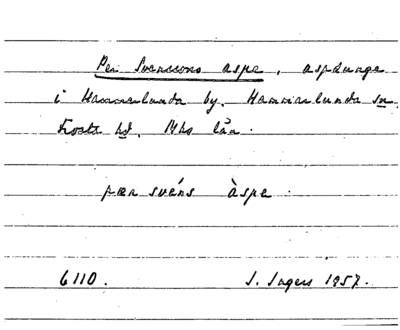 Per Svenssons aspe, aspdunge
i Hammarlunda by. Hammarlunda sn
Frosta hd. Mhs län.
pær svéns àspe.
6110. I. Ingers 1957.